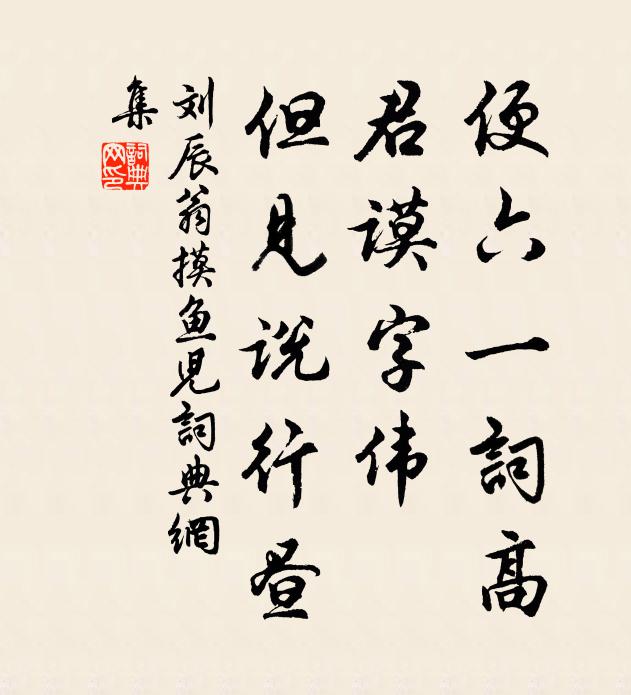 便六一詞高
君谟字伟
但见说行昼
刘辰翁摸鱼児詞典網
集
詞典
网印